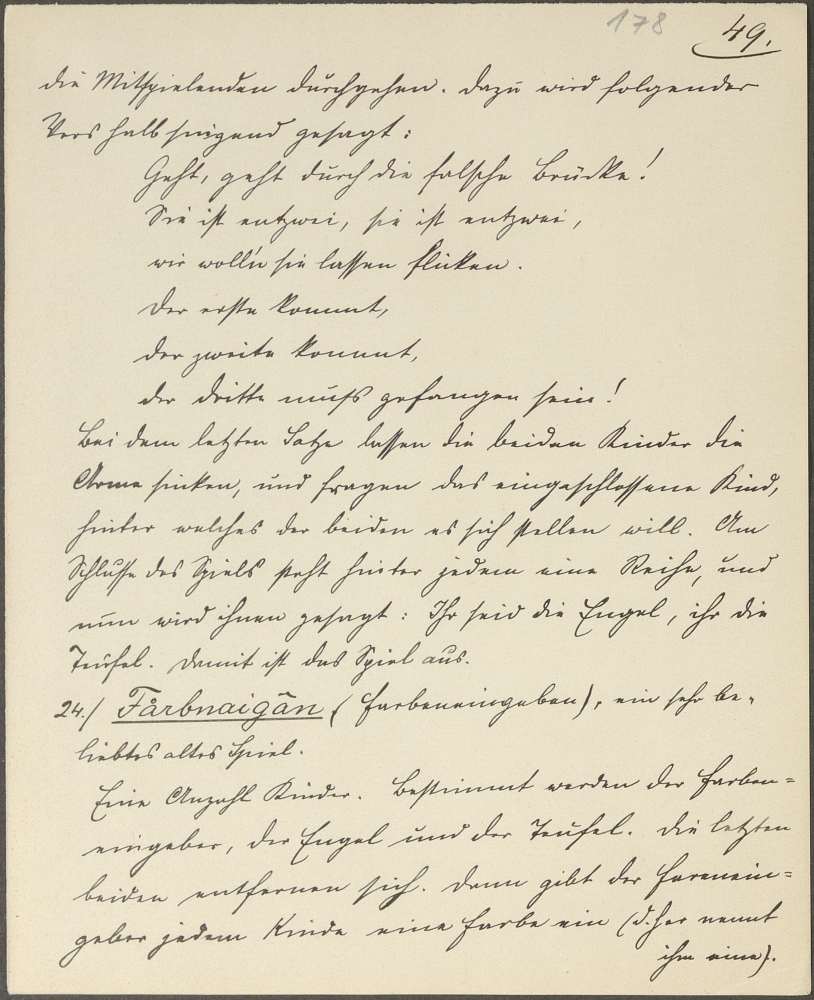 178
49.
die Mitspielenden durchgehen. Dazu wird folgender
Vers halb singend gesagt:
Geht, geht durch die falsche Brücke!
Sie ist entzwei, sie ist entzwei,
wir woll'n sie lassen flicken.
Der erste kommt,
der zweite kommt,
der dritte muſs gefangen sein!
Bei dem letzten Satze lassen die beiden Kinder die
Arme sinken, und fragen das eingeschlossene Kind,
hinter welches der beiden es sich stellen will. Am
Schlusse des Spiels steht hinter jedem eine Reihe, und
nun wird ihnen gesagt: Ihr seid die Engel, ihr die
Teufel. Damit ist das Spiel aus.
24./ Fårbnaigãn (Farbeneingeben), ein sehr be-
liebtes altes Spiel.
Eine Anzahl Kinder. Bestimmt werden der Farben=
eingeber, der Engel und der Teufel. Die letzten
beiden entfernen sich. Dann gibt der Farenein=
geber jedem Kinde eine Farbe ein (d. h. er nennt
ihm eine).